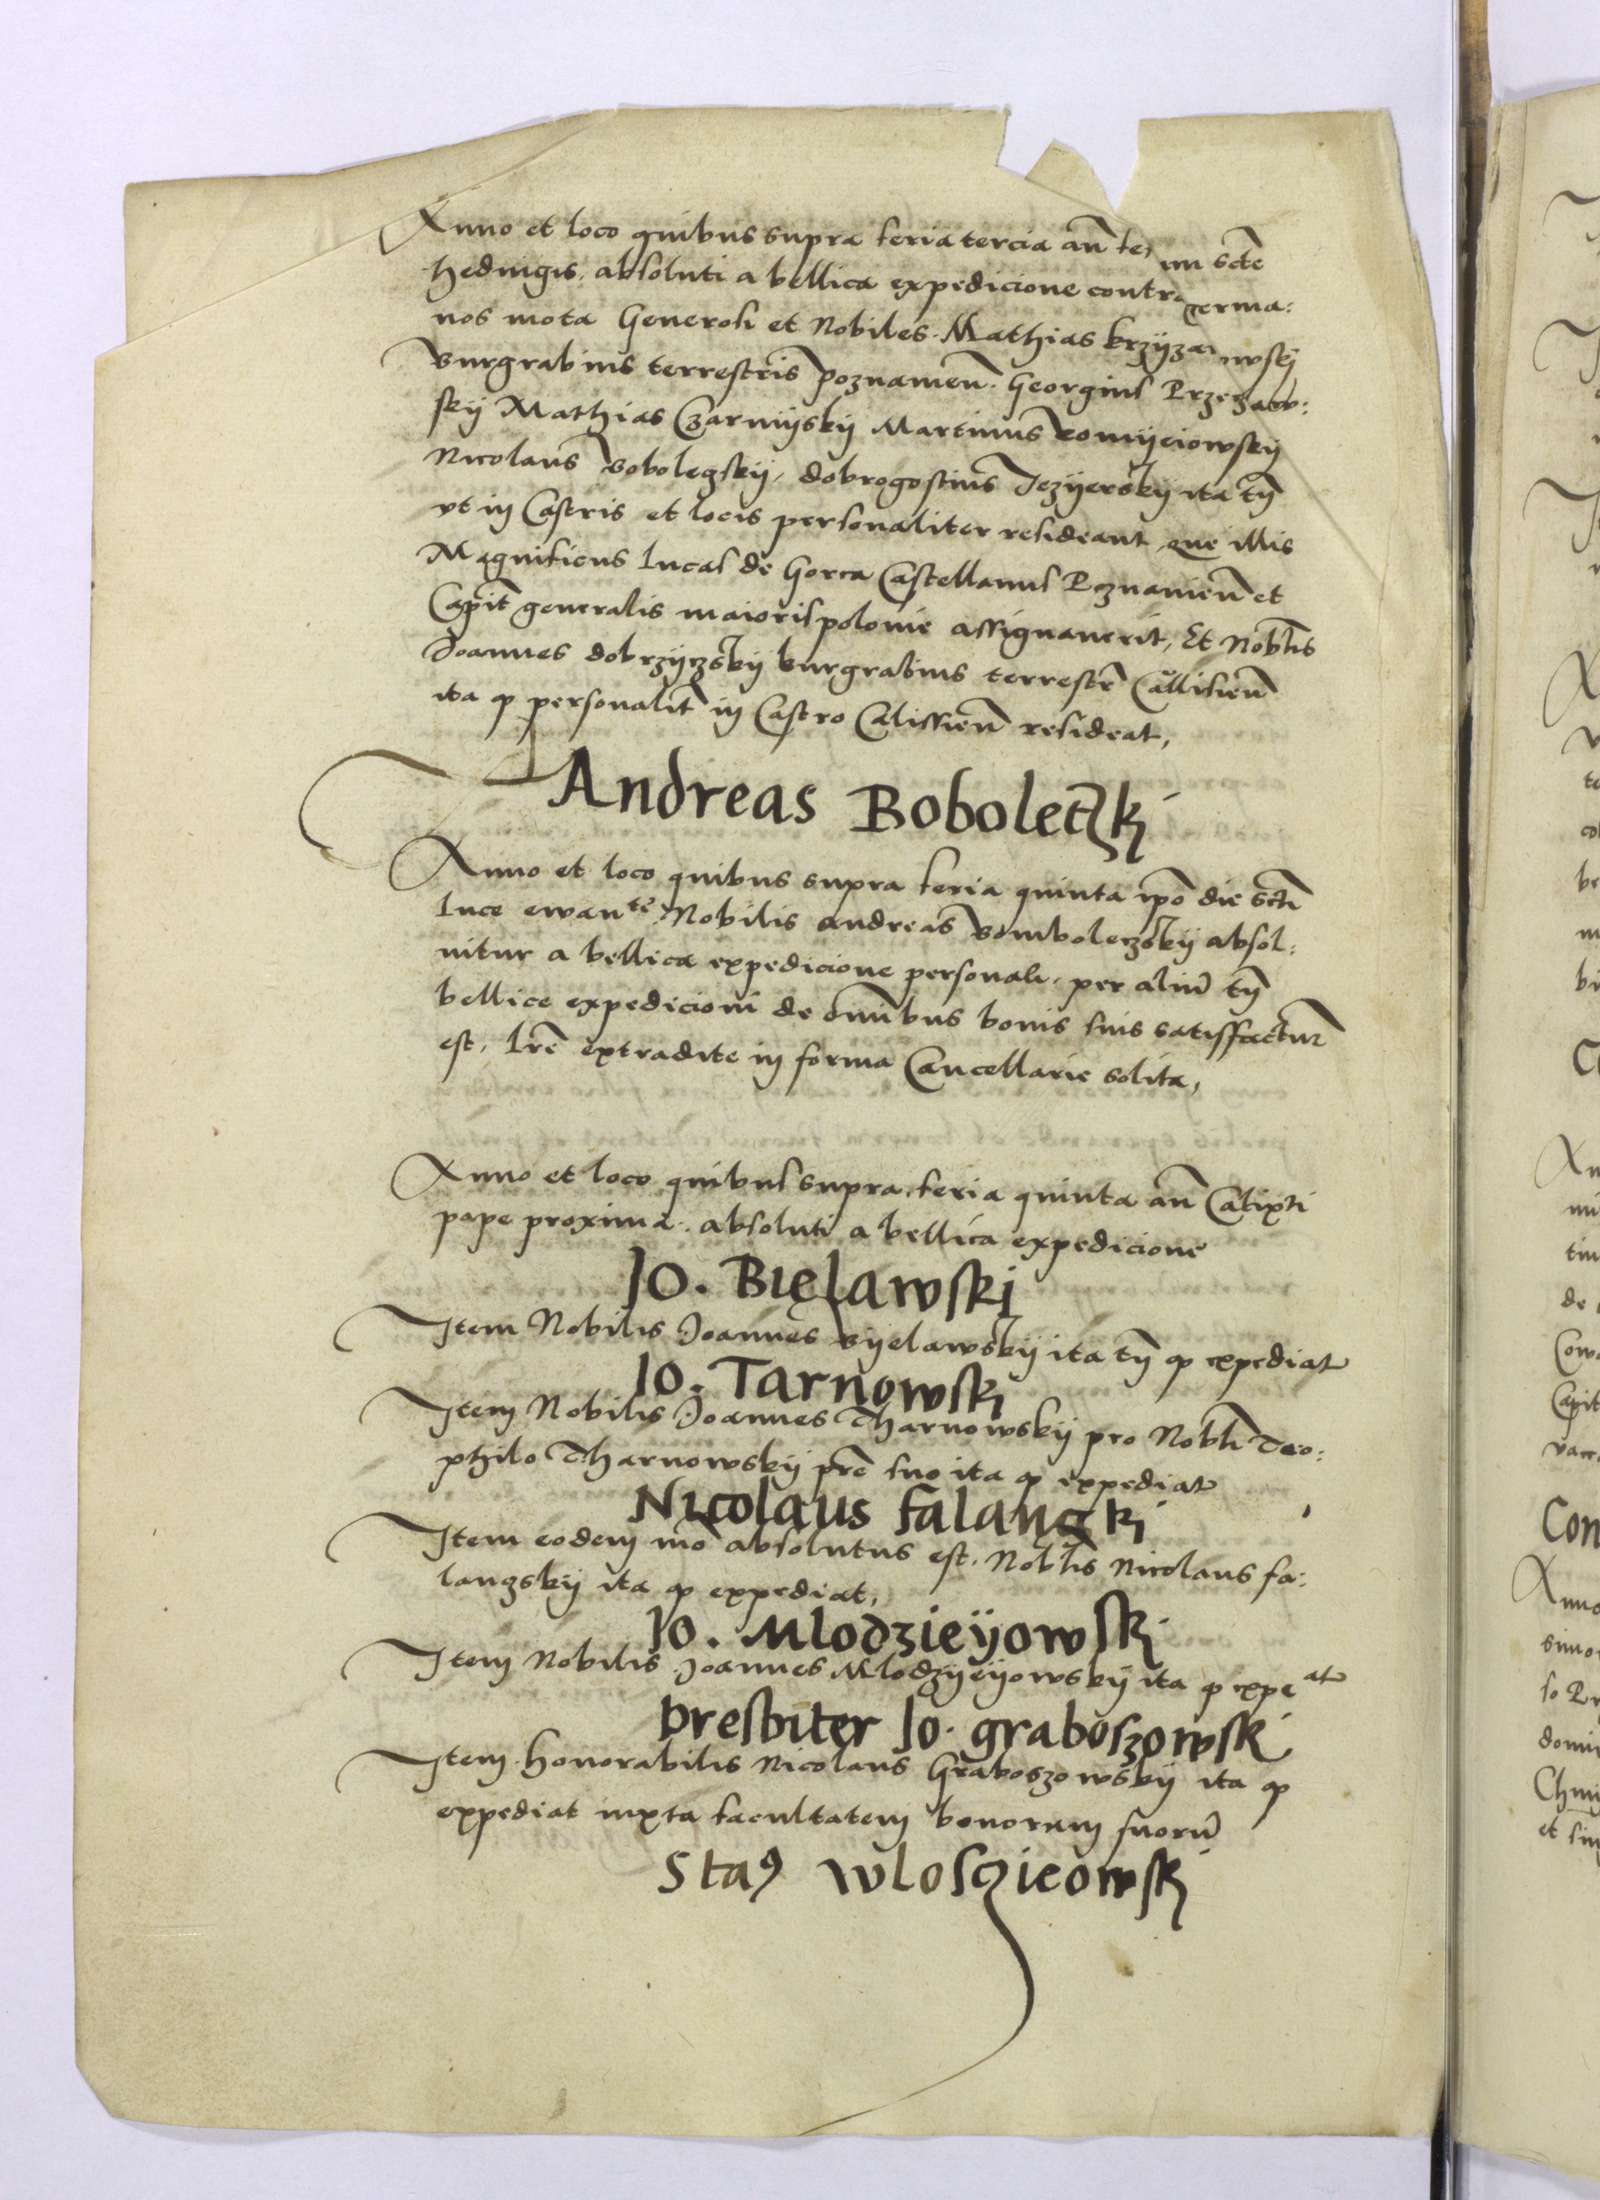 Anno et loco quibus supra feria tercia añ fe um scte
hedwigis. absoluti a bellica expedicione contra Germa:
nos mota Generosi et Nobiles. Mathias krzyżanowsky
Burgrabius terrestris poznanieñ. Georgius Przeczaw:
sky Mathias Czarnysky Martinus Romyeiowsky
Nicolaus Bobolegsky, dobrogostius Jezyersky ita tñ
vt in Castris et locis personaliter resideant que illis
Magnificus lucas de Gorca Castellanus Poznanieñ et
Capit̃ generalis maioris polonie assignauerit, Et Noblis
Joannes dobrzyczsky burgrabius terrestr̃ Callisieñ
ita q personalit̃ in Castro Calissieñ resideat,
Andreas Boboleczkj
Anno et loco quibus supra feria quinta ip̃o die sc̃ti
luce ewan^te Nobilis andreas Bomboleczsky absol:
uitur a bellica expedicione personali. per aliũ tñ
bellice expedicioni de om̃ibus bonis suis satisfacturr
est, lr̃e extradite in forma Cancellarie solita,
Anno et loco quibus supra. feria quinta añ Calixti
pape proxima. absoluti a bellica expedicione
Jo. Bielawskj
Item Nobilis Joannes Byelawsky ita tñ q expediat
Jo. Tarnowskj
Item Nobilis Joannes Tharnowsky pro Nobli Teo:
philo Tharnowsky pr̃e suo ita q expediat
Nicolaus falangkj
Item eodem mõ absolutus est. Noblis Nicolaus fa:
langsky ita q expediat,
Jo. Mlodzieyowskj
Item Nobilis Joannes Mlodzyeyowsky ita q expe at
presbiter Jo. graboszowskj
Item honorabilis Nicolaus Graboszowsky ita q
expediat iuxta facultatem bonorum suorũ
Sta9 wlosczieowskj